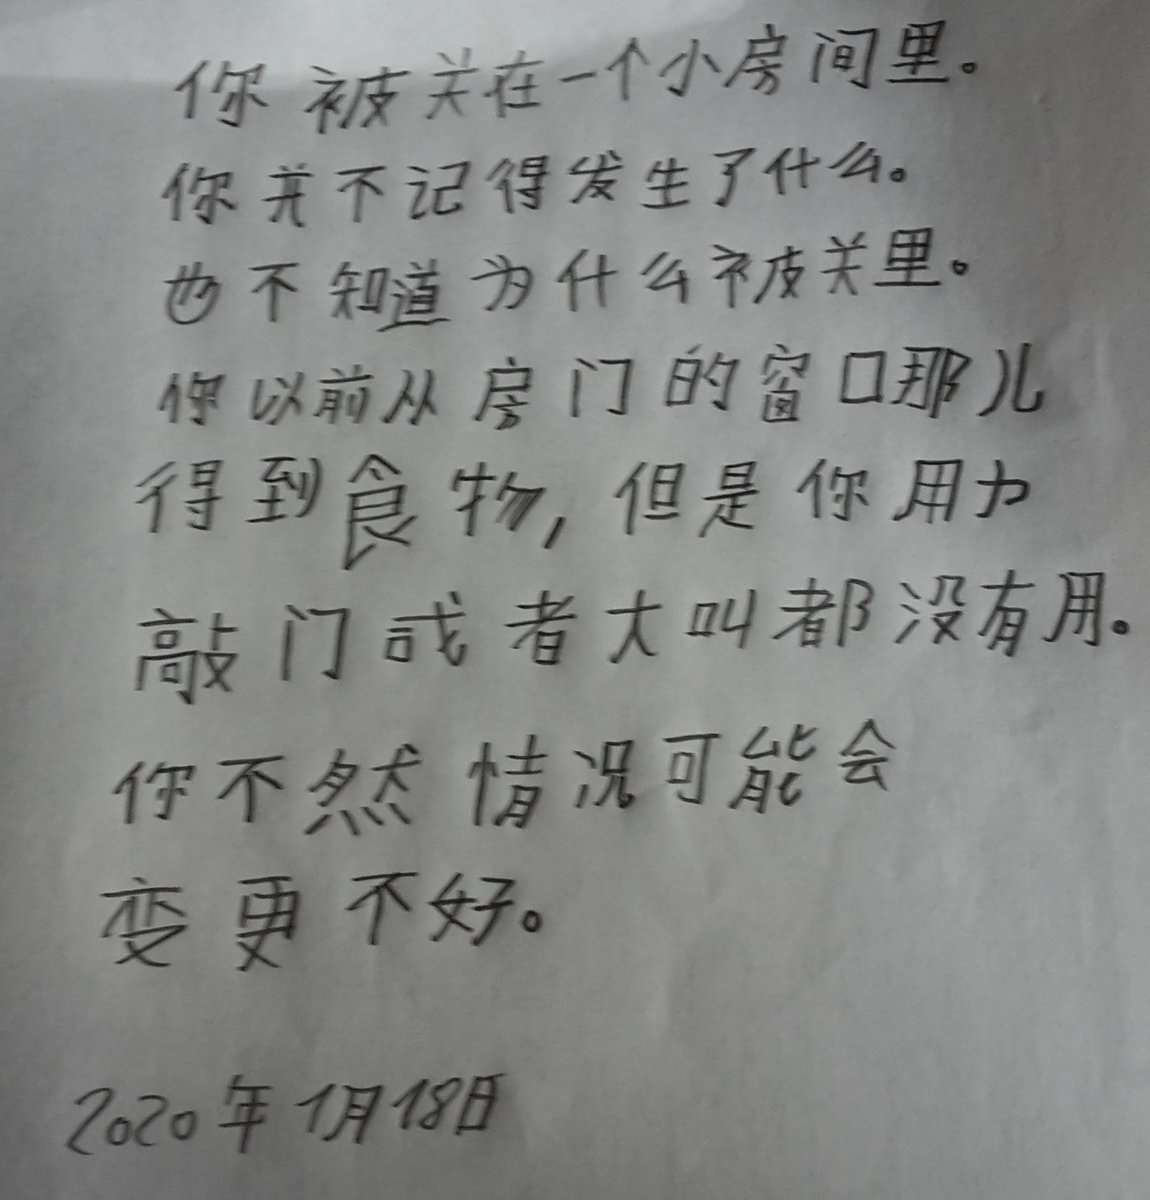 你被关在一个小房间里。
你并不记得发生了什么。
也不知道为什么被关里。
你以前从房门的窗口那儿
得到食物，但是你用力
敲门或者大叫都没有用。
你不然情况可能会
变更不好。
2020年1月18日